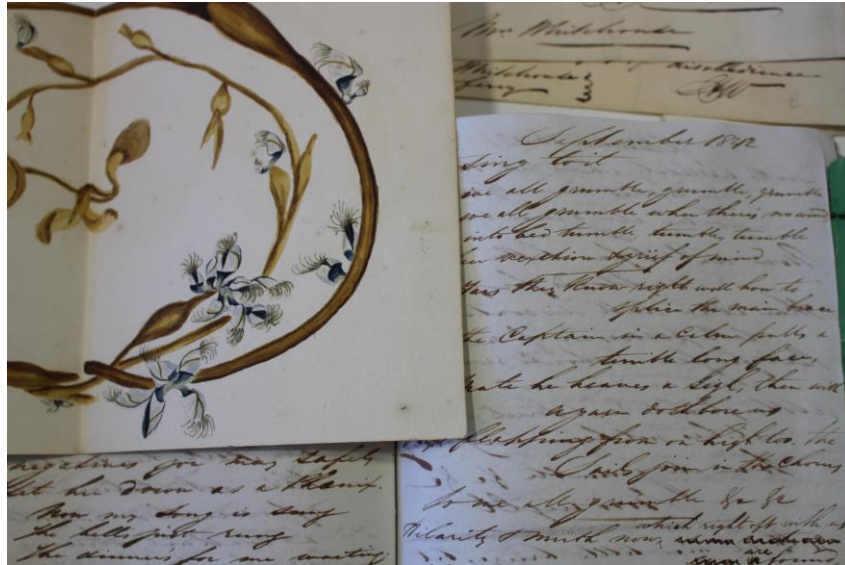 Mrs Whitehouse
Whitehouse's disobedience
September 1842
Sing to it
we all grumble, grumble, grumble
we all grumble when there's no wind
into bed tumble tumble tumble
in vexation & grief of mind
they know right well how to
splice the main brace
the Captain in a Calm pulls a
terrible long face
he heaves a sigh, then with
again
flapping from on high too the
Sails join in the Chorus
so we all grumble &c &c
which right oft with us
Hilarity & mirth now,
are
found
negatives you may safely
Set her down as a
Now my song is sung
the bells just rung
the dinner's for me waiting